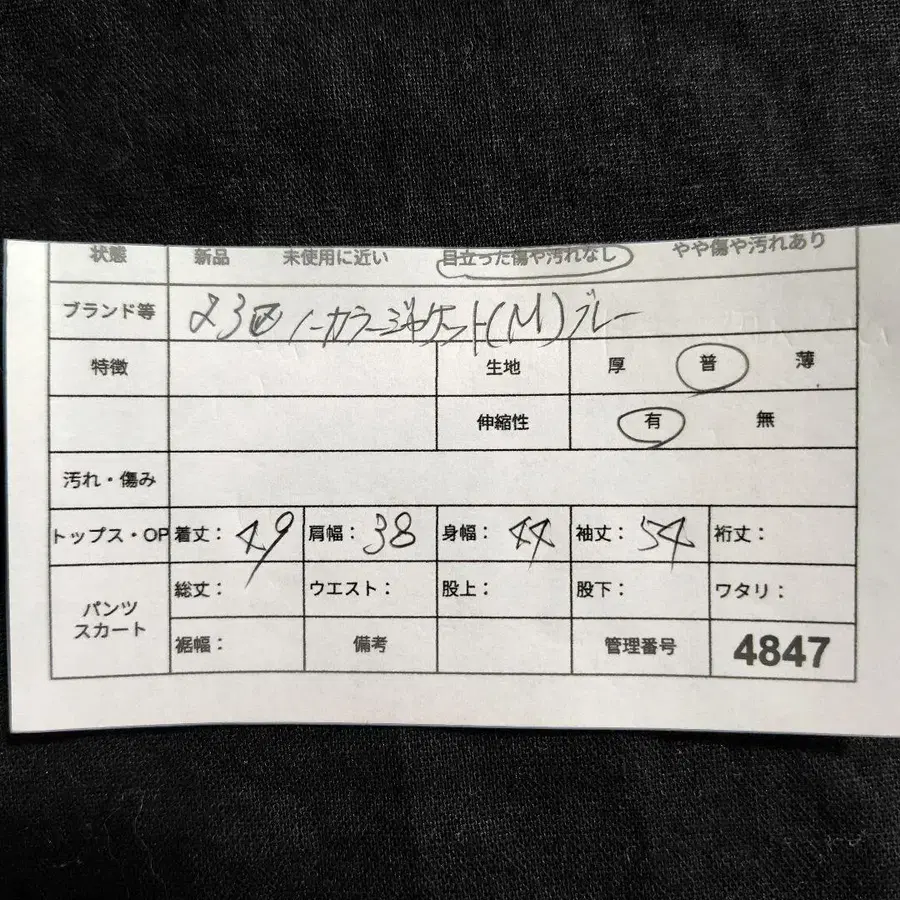 状態 新品 未使用に近い 目立った傷や汚れなし やや傷や汚れあり
ブランド等 23区 ノーカラージャケット(M) ブルー
特徴 生地 厚 普 薄
伸縮性 有 無
汚れ・傷み
トップス・OP 着丈: 49 肩幅: 38 身幅: 44 袖丈: 54 裄丈:
パンツ スカート 総丈: ウエスト: 股上: 股下: ワタリ:
裾幅: 備考 管理番号 4847